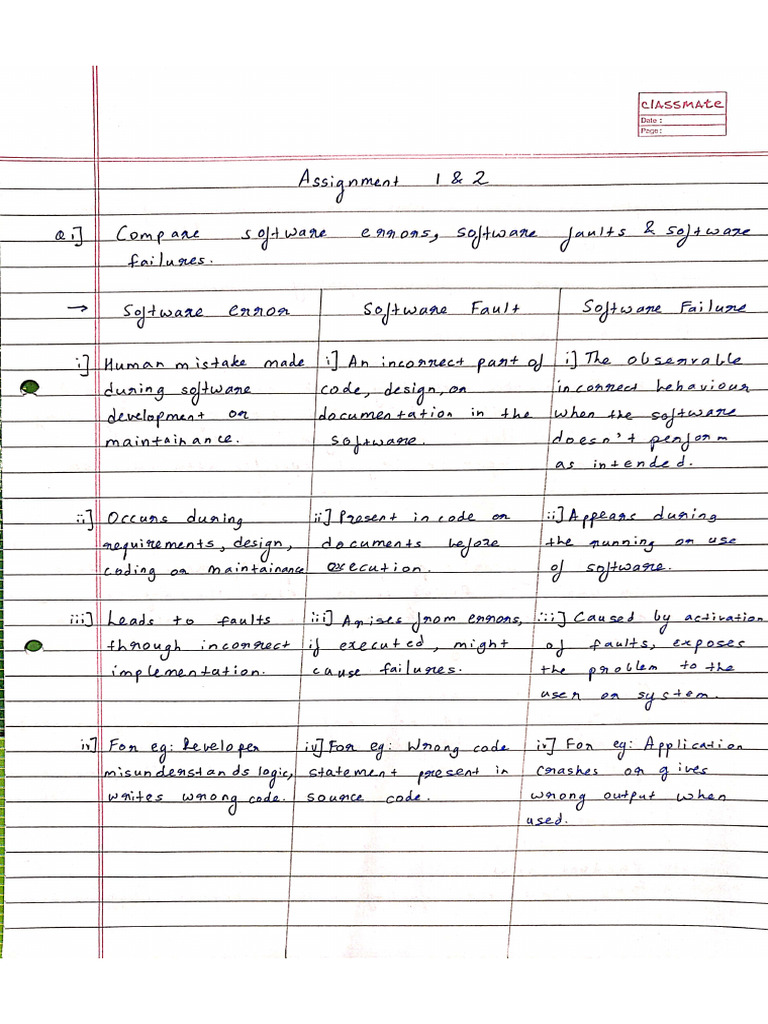 classmate
Date :
Page :
Assignment 1 & 2
Q1] Compare software errors, software faults & software
failures.
→ Software error
Software Fault
Software Failure
i] Human mistake made
during software
development or
maintainance.
i] An incorrect part of
code, design, or
documentation in the
software.
i] The observable
incorrect behaviour
when the software
doesn't perform
as intended.
ii] Occurs during
requirements, design,
coding or maintainance
ii] Present in code or
documents before
execution.
ii] Appears during
the running or use
of software.
iii] Leads to faults
through incorrect
implementation.
iii] Arises from errors,
if executed, might
cause failures.
iii] Caused by activation
of faults, exposes
the problem to the
user or system.
iv] For eg: Developer
misunderstands logic,
writes wrong code.
iv] For eg: Wrong code
statement present in
source code.
iv] For eg: Application
crashes or gives
wrong output when
used.